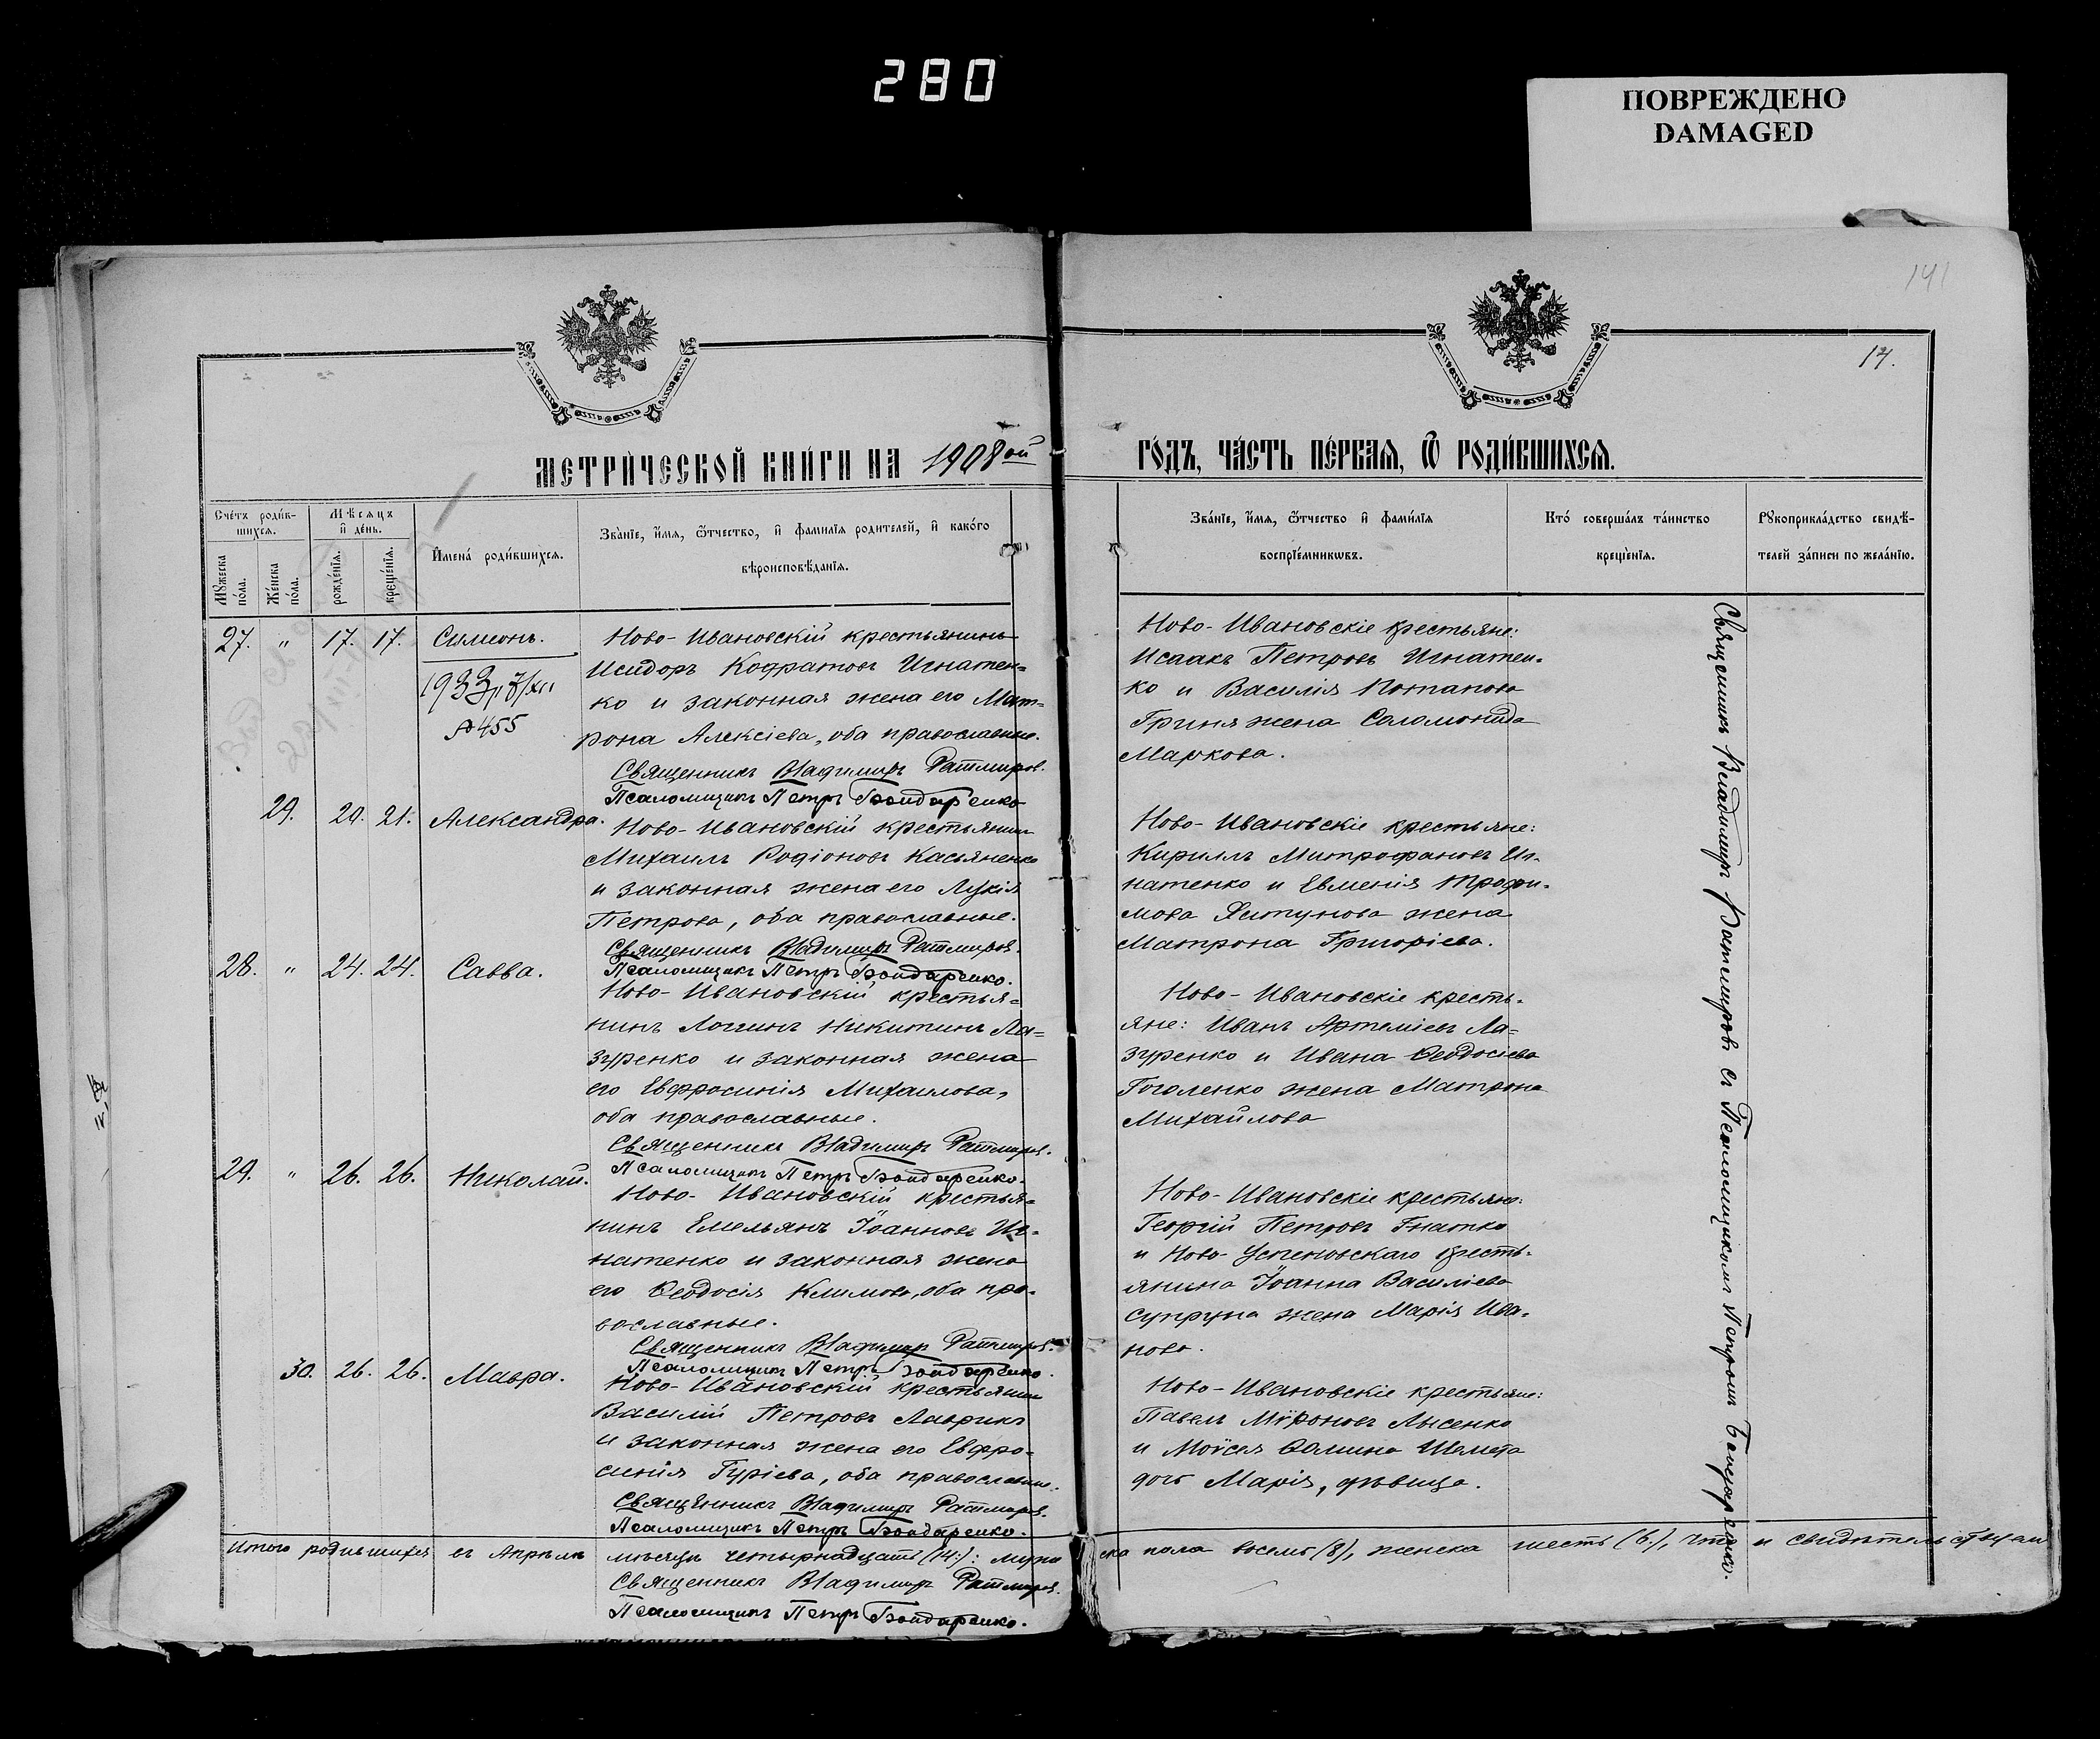 280
ПОВРЕЖДЕНО
DAMAGED
141
14.
МЕТРИЧЕСКОЙ КНИГИ НА 1908ой
ГОДЪ, ЧАСТЬ ПЕРВАЯ, Ѿ РОДИВШИХСЯ.
Счетъ родив-
шихся.
Мѣсяцъ
и день.
Мужеска
пола.
Женска
пола.
рожденія.
крещенія.
Имена родившихся.
Званіе, имя, ѿтчество, и фамилія родителей, и какого
вѣроисповѣданія.
Званіе, имя, ѿтчество и фамилія
воспріемниковъ.
Кто совершалъ таинство
крещенія.
Рукоприкладство свидѣ-
телей записи по желанію.
27. " 17. 17. Симеонъ.
1933
455
Ново-Ивановскій крестьянинъ
Исидоръ Кодратовъ Игнатен-
ко и законная жена его Мат-
рона Алексіева, оба православные.
Священникъ Владимиръ Ратмировъ.
Псаломщикъ Петръ Бондаренко
Ново-Ивановскіе крестьяне:
Исаакъ Петровъ Игнатен-
ко и Василія Потапова
Гриня жена Соломонида
Маркова.
29. 20. 21. Александра.
Ново-Ивановскій крестьянинъ
Михаилъ Родіоновъ Касьяненко
и законная жена его Лукія
Петрова, оба православные.
Священникъ Владимиръ Ратмировъ.
Псаломщикъ Петръ Бондаренко.
Ново-Ивановскіе крестьяне:
Кириллъ Митрофановъ Иг-
натенко и Евменія Трофи-
мова жена
Матрона Григоріева.
28. " 24. 24. Савва.
Ново-Ивановскій крестья-
нинъ Логгинъ Никитинъ Ла-
зуренко и законная жена
его Евфросинія Михаилова,
оба православные.
Священникъ Владимиръ Ратмировъ.
Псаломщикъ Петръ Бондаренко.
Ново-Ивановскіе кресть-
яне: Иванъ Артеміевъ Ла-
зуренко и Ивана Ѳеодосіева
Гоголенко жена Матрона
Михайлова
29. " 26. 26. Николай.
Ново-Ивановскій крестья-
нинъ Емельянъ Іоанновъ Иг-
натенко и законная жена
его Ѳеодосія Климова, оба пра-
вославные.
Священникъ Владимиръ Ратмировъ.
Псаломщикъ Петръ Бондаренко.
Ново-Ивановскіе крестьяне:
Георгій Петровъ Гнатко
и Ново-Успеновскаго кресть-
янина Іоанна Василіева
Супруна жена Марія Ива-
нова.
30. 26. 26. Мавра.
Ново-Ивановскій крестьянинъ
Василій Петровъ Лаврикъ
и законная жена его Евфро-
синія Гуріева, оба православные.
Священникъ Владимиръ Ратмировъ.
Псаломщикъ Петръ Бондаренко.
Ново-Ивановскіе крестьяне:
Павелъ Мѵроновъ Лысенко
и Моѵсея Ѳомина Шемета
дочь Марія, дѣвица.
Священникъ Владимиръ Ратмировъ съ Псаломщикомъ Петромъ Бондаренко.
Итого родившихся въ Апрѣлѣ мѣсяцѣ четырнадцать (14): муже ска пола восемь (8), женска шесть (6), что и свидѣтельствуемъ
Священникъ Владимиръ Ратмировъ.
Псаломщикъ Петръ Бондаренко.